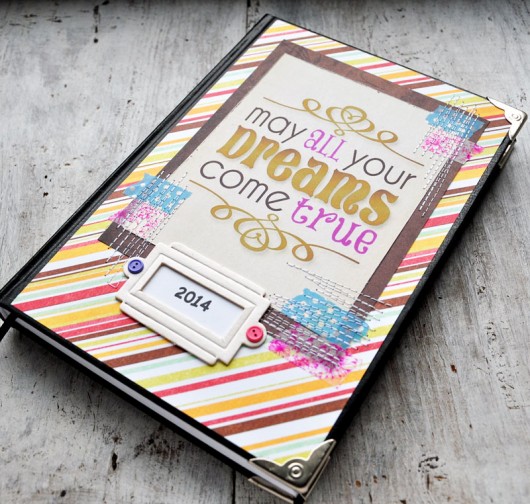 may all your
DReams
come true
2014